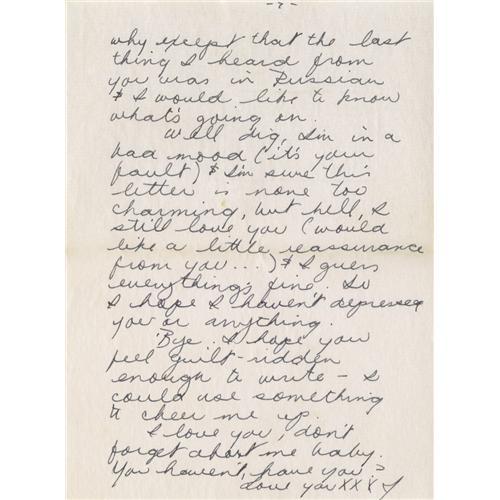 -2-
why except that the last
thing I heard from
you was in Russian
& I would like to know
what's going on.
Well dig, I'm in a
bad mood (it's your
fault) & I'm sure this
letter is none too
charming, but hell, I
still love you (would
like a little reassurance
from you...) & I guess
everything's fine. So
I hope I haven't depressed
you or anything.
Bye. I hope you
feel guilt-ridden
enough to write - I
could use something
to cheer me up.
I love you, don't
forget about me baby.
You haven't, have you?
Love you XXX